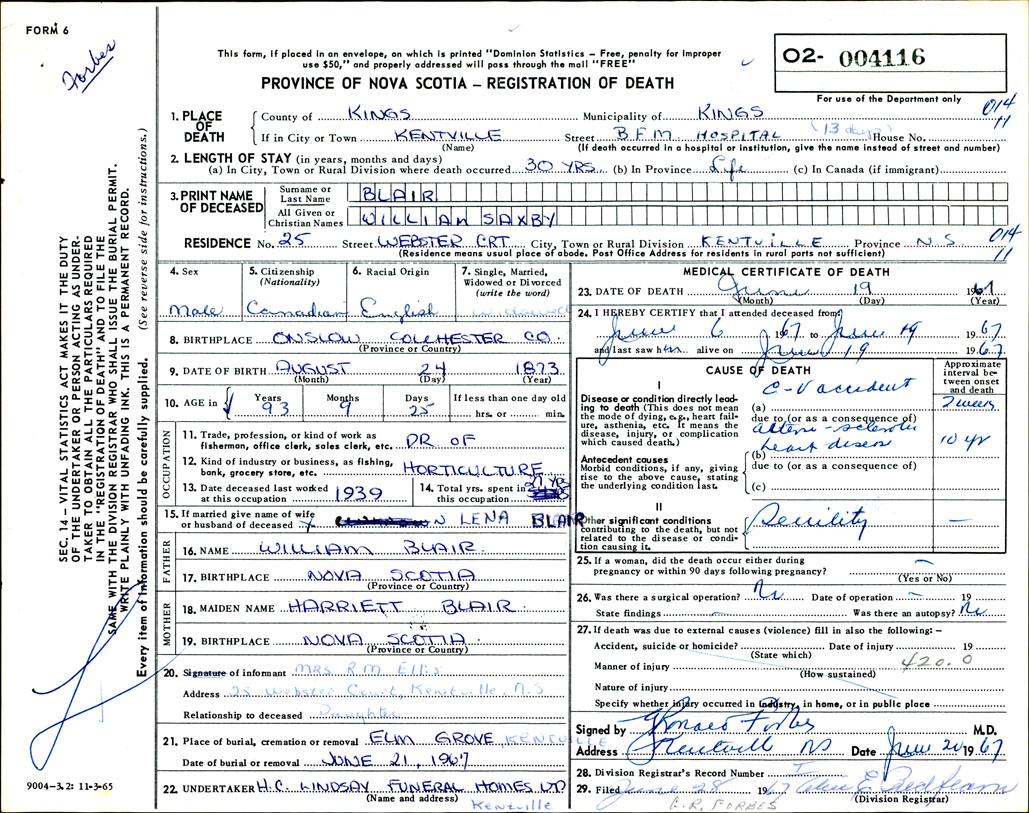 FORM 6
Forbes
This form, if placed in an envelope, on which is printed "Dominion Statistics – Free, penalty for improper
use $50," and properly addressed will pass through the mail "FREE"
PROVINCE OF NOVA SCOTIA – REGISTRATION OF DEATH
02- 004116
For use of the Department only
014
11
1. PLACE OF DEATH
County of KINGS Municipality of KINGS
If in City or Town KENTVILLE Street B.F.M. HOSPITAL (13 days) House No.
(Name) (If death occurred in a hospital or institution, give the name instead of street and number)
2. LENGTH OF STAY (in years, months and days)
(a) In City, Town or Rural Division where death occurred 30 YRS (b) In Province Life (c) In Canada (if immigrant)
3. PRINT NAME OF DECEASED
Surname or Last Name BLAIR
All Given or Christian Names WILLIAM SAXBY
RESIDENCE No. 25 Street WEBSTER CRT City, Town or Rural Division KENTVILLE Province N.S. 014
11
(Residence means usual place of abode. Post Office Address for residents in rural parts not sufficient)
4. Sex
Male
5. Citizenship (Nationality)
Canadian
6. Racial Origin
English
7. Single, Married, Widowed or Divorced (write the word)
Widowed
8. BIRTHPLACE ONSLOW COLCHESTER CO.
(Province or Country)
9. DATE OF BIRTH AUGUST 24 1873
(Month) (Day) (Year)
10. AGE in Years Months Days If less than one day old
93 9 25 hrs. or min.
OCCUPATION
11. Trade, profession, or kind of work as
fisherman, office clerk, sales clerk, etc. DR OF
12. Kind of industry or business, as fishing,
bank, grocery store, etc. HORTICULTURE
13. Date deceased last worked
at this occupation 1939
14. Total yrs. spent in
this occupation
15. If married give name of wife
or husband of deceased LENA BLAIR
FATHER
16. NAME WILLIAM BLAIR
17. BIRTHPLACE NOVA SCOTIA
(Province or Country)
MOTHER
18. MAIDEN NAME HARRIETT BLAIR
19. BIRTHPLACE NOVA SCOTIA
(Province or Country)
20. Signature of informant MRS. R.M. Ellis
Address 25 Webster Court, Kentville, N.S
Relationship to deceased Daughter
21. Place of burial, cremation or removal ELM GROVE, KENTVILLE
Date of burial or removal JUNE 21, 1967
22. UNDERTAKER H.C. LINDSAY FUNERAL HOMES LTD
(Name and address) Kentville
MEDICAL CERTIFICATE OF DEATH
23. DATE OF DEATH June 19 1967
(Month) (Day) (Year)
24. I HEREBY CERTIFY that I attended deceased from
June 6 1967 to June 19 1967
and last saw him alive on June 19 1967.
CAUSE OF DEATH
Approximate interval between onset and death
I
Disease or condition directly leading to death (This does not mean the mode of dying, e.g., heart failure, asthenia, etc. It means the disease, injury, or complication which caused death.)
(a) C-V accident 2 weeks
due to (or as a consequence of)
Antecedent causes
Morbid conditions, if any, giving rise to the above cause, stating the underlying condition last.
(b) arterio-sclerotic heart disease 10 yr
due to (or as a consequence of)
(c)
II
Other significant conditions contributing to the death, but not related to the disease or condition causing it.
Senility –
25. If a woman, did the death occur either during
pregnancy or within 90 days following pregnancy? –
(Yes or No)
26. Was there a surgical operation? No Date of operation – 19
State findings – Was there an autopsy? No
27. If death was due to external causes (violence) fill in also the following: –
Accident, suicide or homicide? Date of injury 19
(State which) 420.0
Manner of injury
(How sustained)
Nature of injury
Specify whether injury occurred in industry, in home, or in public place
Signed by Forbes M.D.
Address Kentville NS Date June 20 1967
28. Division Registrar's Record Number
29. Filed June 28 1967
(Division Registrar)
C.R. FORBES
SEC. 14 – VITAL STATISTICS ACT MAKES IT THE DUTY
OF THE UNDERTAKER OR PERSON ACTING AS UNDER-
TAKER TO OBTAIN ALL THE PARTICULARS REQUIRED
IN THE "REGISTRATION OF DEATH" AND TO FILE THE
SAME WITH THE DIVISION REGISTRAR WHO SHALL ISSUE THE BURIAL PERMIT.
WRITE PLAINLY WITH UNFADING INK. THIS IS A PERMANENT RECORD.
Every item of information should be carefully supplied. (See reverse side for instructions.)
9004-3.2: 11-3-65